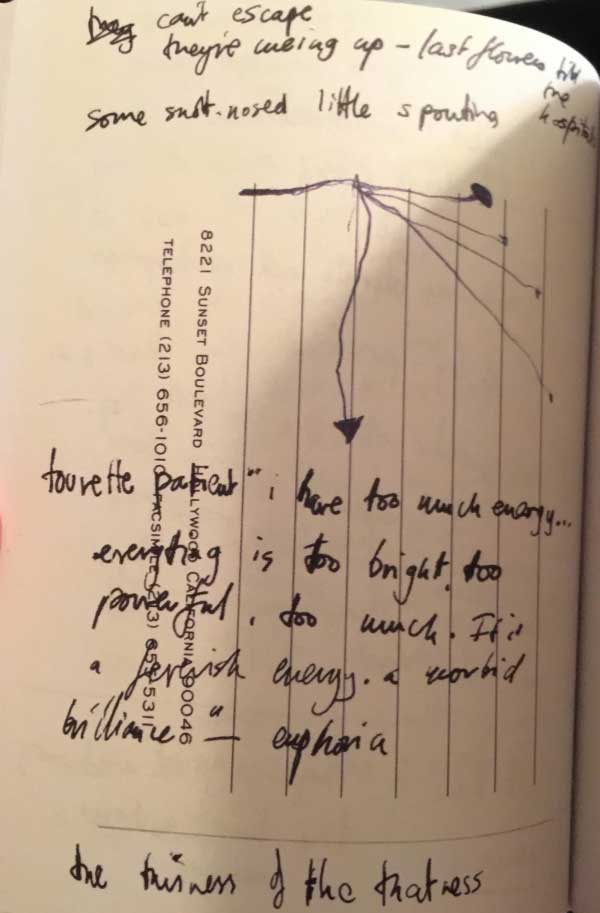 can't escape
they're wising up - last flowers till the hospital
some snot-nosed little spouting
8221 SUNSET BOULEVARD HOLLYWOOD CALIFORNIA 90046
TELEPHONE (213) 656-1010 FACSIMILE (213) 655-5311
tourette patient "i have too much energy...
everything is too bright, too
powerful, too much. It is
a feverish energy. a morbid
brilliance" — euphoria
the thisness of the thatness